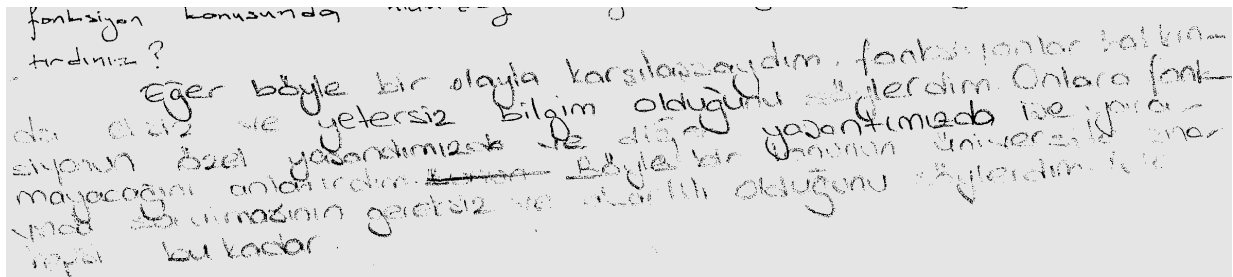 fonksiyon konusunda
tırdınız?
Eğer böyle bir olayla karşılaşsaydım. fonksiyonlar hakkın-
da ve yetersiz bilgim olduğunu söylerdim. Onlara fonk-
siyonun özel yaşandımızda ve diğer yaşantımızda işe yara-
mayacağını anlatırdım. Böyle bir konunun üniversite sınav
gereksiz ve olduğunu söylerdim.
bu kadar.